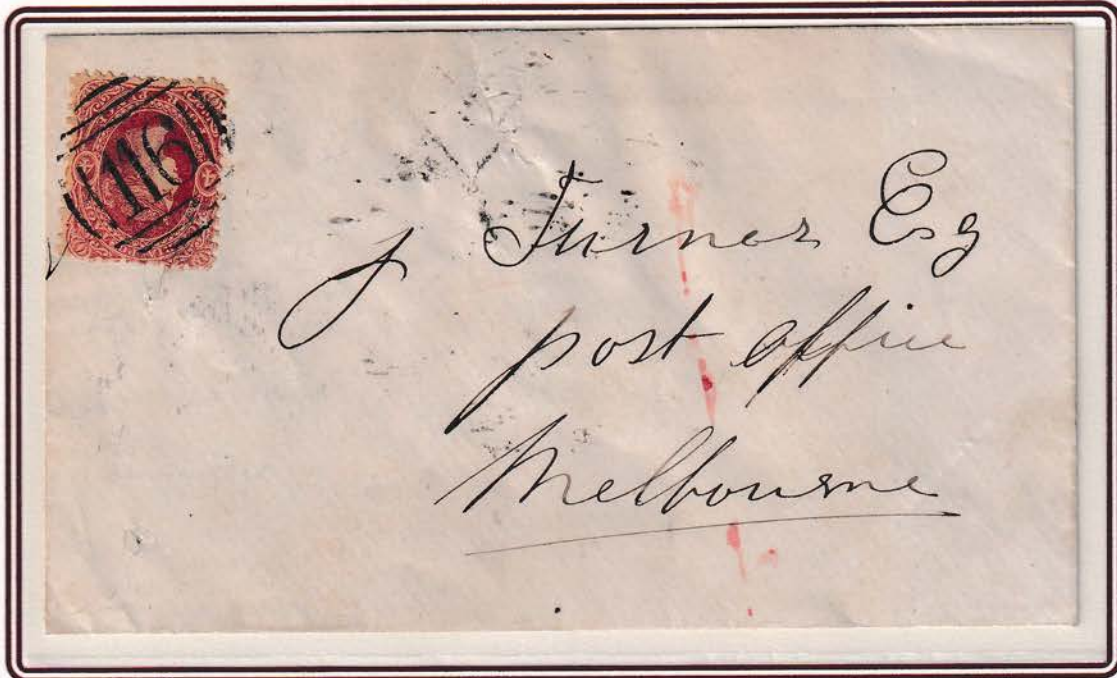 116
J Turner Esq
post office
Melbourne